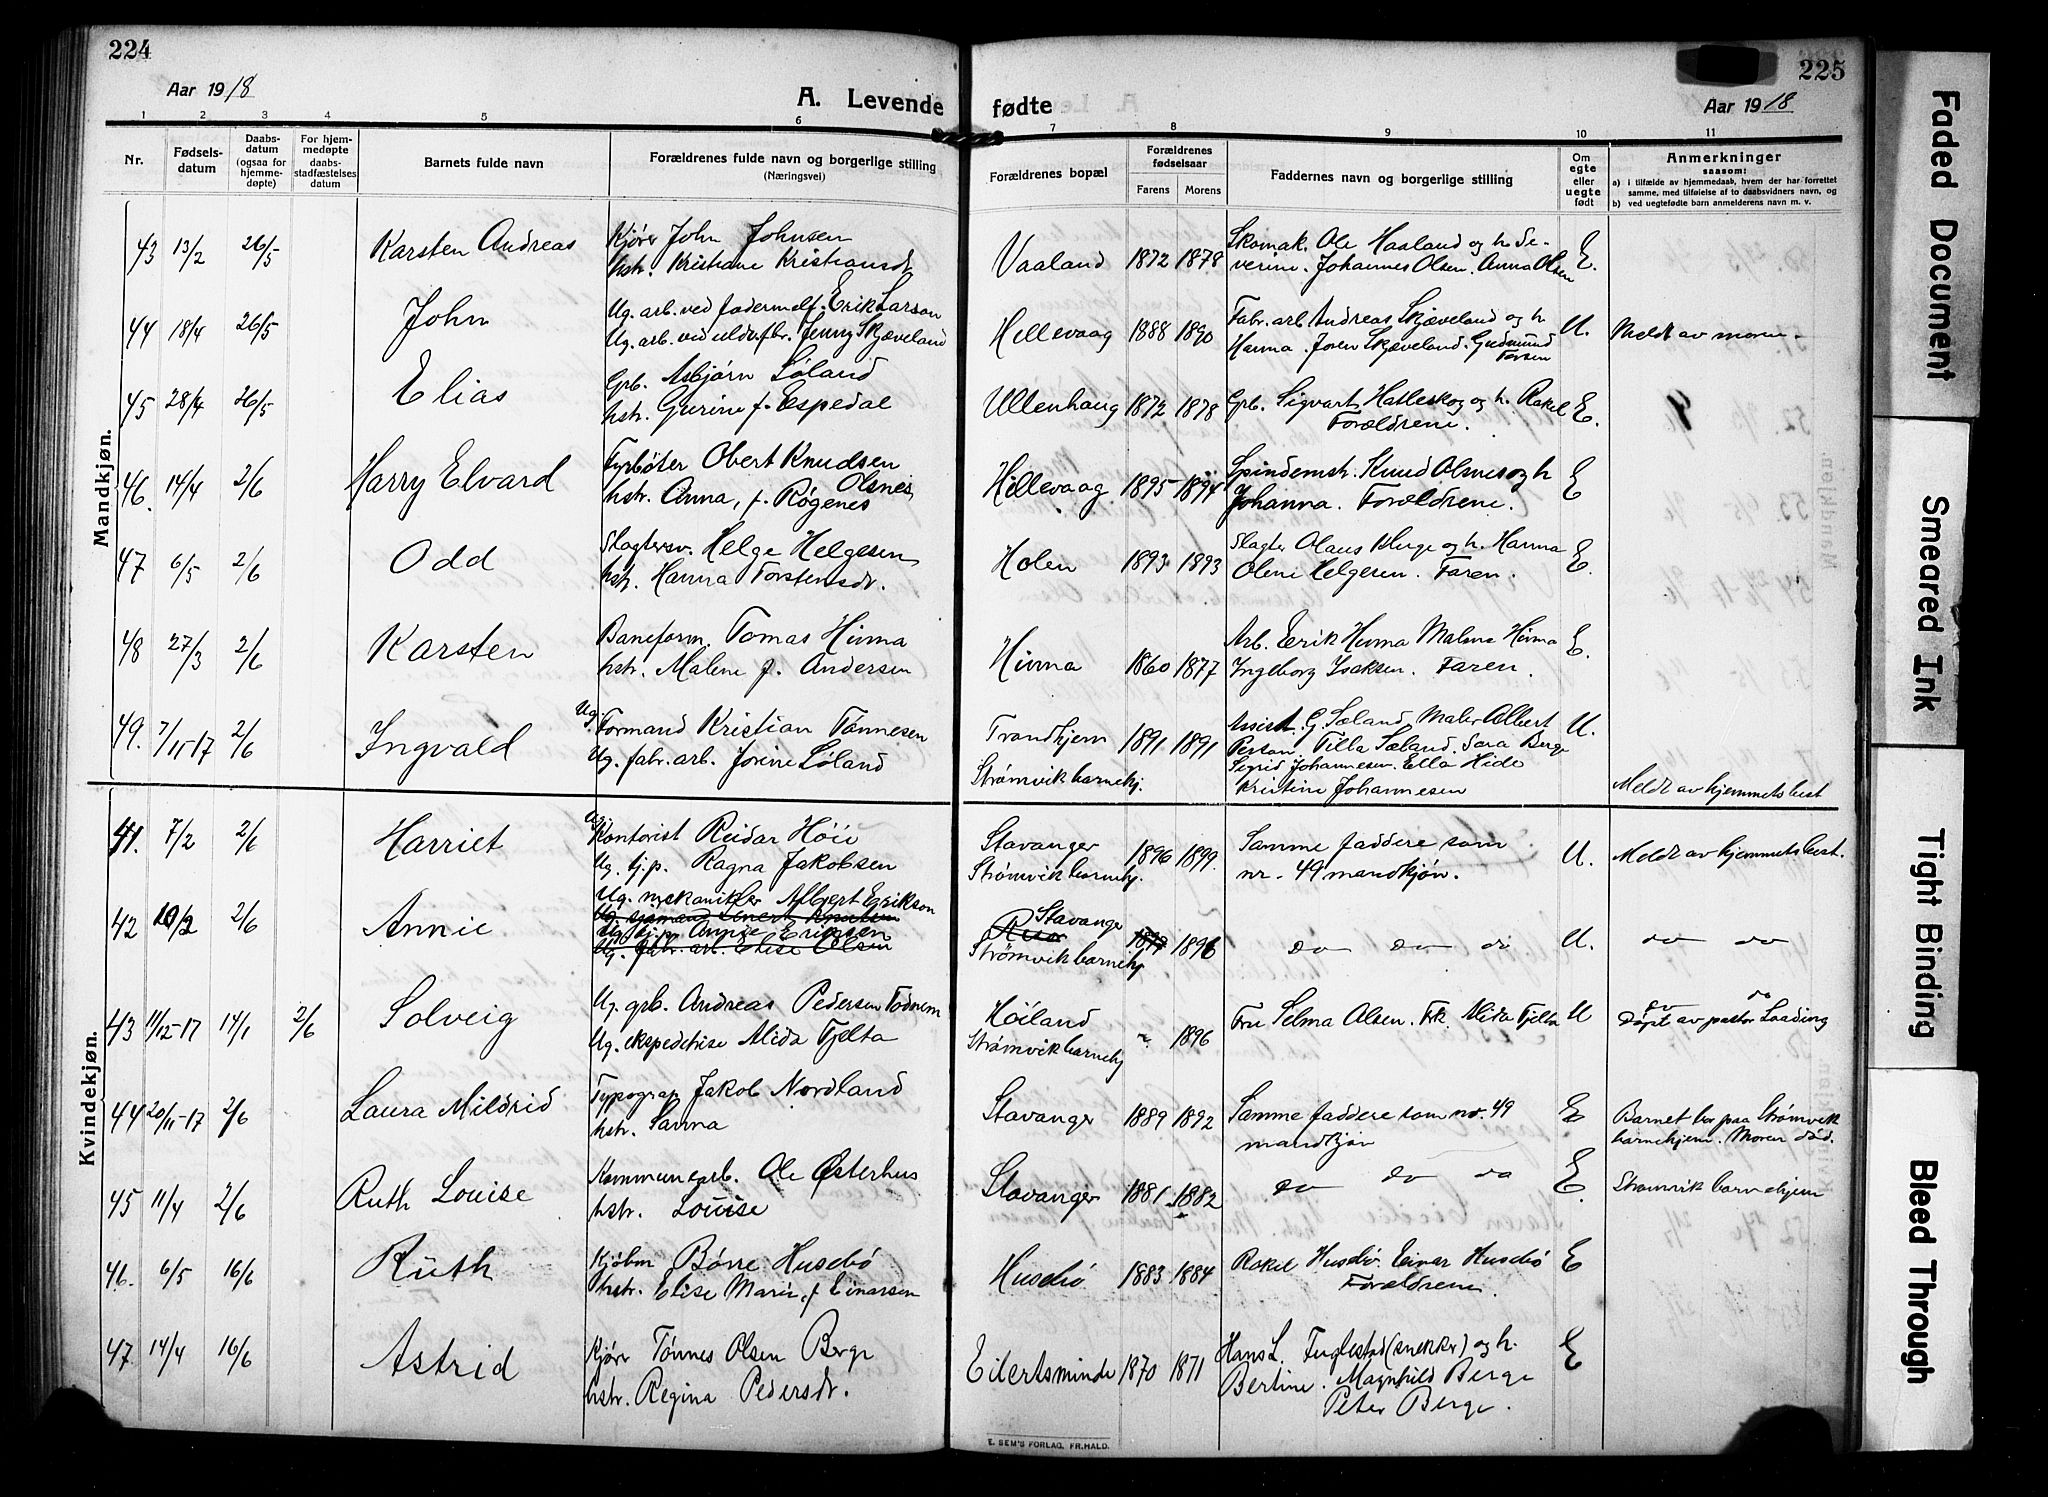 224
Aar 1918
A. Levende
1 2 3 4 5 6
Nr.
Fødsels-
datum
Daabs-
datum
(ogsaa for
hjemme-
døpte)
For hjem-
medøpte
daabs-
stadfæstelses
datum
Barnets fulde navn
Forældrenes fulde navn og borgerlige stilling
(Næringsvei)
Mandkjøn.
43 13/2 26/5 Karsten Andreas
Kjører John Johnsen
hstr. Kristiane Kristiansdt
44 18/4 26/5 John
Ug. arb. ved Erik Larson
Ug. arb. ved Jenny Skjæveland
45 28/4 26/5 Elias
Grb. Asbjørn Løland
hstr. Gurine f. Espedal
46. 14/4 2/6 Harry Elvard
Fyrbøter Obert Knudsen
Olsnes
hstr. Anna, f. Røgenes
47 6/5 2/6 Odd
Slagtersv. Helge Helgesen
hstr. Hanna Torstensdt.
48 27/3 2/6 Karsten
Baneform. Tomas Hinna
hstr. Malene f. Andersen
49. 7/11-17 2/6 Ingvald
Ug. Formand Kristian Tønnesen
Ug. fabr. arb. Jorine Løland
Kvindekjøn.
41. 7/2 2/6 Harriet
Ug. Kontorist Reidar Høie
Ug. tj.p. Ragna Jakobsen
42 10/2 2/6 Annie
Ug. Albert Erikson
Ug. sjømand
Ug. tj.p. Annie Eriksen
Ug. fabr. arb. Elise Olsen
43 11/12-17 14/1 2/6 Solveig
Ug. grb. Andreas Pedersen Todnem
Ug. ekspeditrise Alida Tjelta
44 20/11-17 2/6 Laura Mildrid
Typograf Jakob Nordland
hstr. Sanna
45 11/4 2/6 Ruth Louise
Kommunearb. Ole Østerhus
hstr. Louise
46. 6/5 16/6 Ruth
Kjøbm Børre Husebø
hstr. Elise Marie, f Einarsen
47. 14/4 16/6 Astrid
Kjører Tønnes Olsen Berge
hstr. Regina Pedersdt.
225
fødte
Aar 1918
7 8 9 10 11
Forældrenes bopæl
Forældrenes
fødselsaar
Farens Morens
Faddernes navn og borgerlige stilling
Om
egte
eller
uegte
født
Anmerkninger
saasom:
a) i tilfælde av hjemmedaab, hvem der har forrettet
samme, med tilføielse af to daabsvidners navn, og
b) ved uegtefødte barn anmelderens navn m. v.
Vaaland 1872 1878
Skomak. Ole Haaland og h. Se-
verine. Johannes Olsen. Anna Olsen
E.
Hillevaag 1888 1890
Fabr. arb. Andreas Skjæveland og h.
Hanna. Joren Skjæveland. Gudmund
U. Meldt av moren.
Ullenhaug 1872 1878
Grb. Sigvart Hatleskog og h. Rakel
Forældrene.
E.
Hillevaag 1895 1894
Spindemstr. Knud Olsnes og h
Johanna. Forældrene.
E
Holen 1893 1893
Slagter Olaus Berge og h. Hanna
Oline Helgesen. Faren.
E.
Hinna 1860 1877
Arb. Erik Hinna Malene Hinna
Ingeborg Isaksen. Faren.
E.
Trondhjem 1891 1891
Strømvik barnehj.
Assist. G. Sæland, Maler Albert
Person. Tilla Sæland. Sara Berge
Sigrid Johannesen. Ella Hide
Kristine Johannesen
U.
Meldt av hjemmets best
Stavanger 1896 1899.
Strømvik barnehj.
Samme faddere som
nr. 49 mandkjøn.
U. Meldt av hjemmets best.
Stavanger
Strømvik barnehj 1896
do do do U. do do
Høiland
Strømvik barnehj " 1896
Fru Selma Olsen. Frk. Alida Tjelta U
do do
Døpt av pastor Loading
Stavanger 1889 1892
Samme faddere som nr. 49
mandkjøn
E
Barnet bor paa Strømvik
barnehjem. Moren død.
Stavanger 1881 1882
do do do E. Strømvik barnehjem
Husebø 1883 1884
Rakel Husebø. Einar Husebø
Forældrene.
E
Eilertsminde 1870 1871
Hans L. Fuglestad (snekker) og h.
Bertine. Magnhild Berge
Peter Berge.
E
E. SEM'S FORLAG, FR.HALD.
Faded Document
Smeared Ink
Tight Binding
Bleed Through